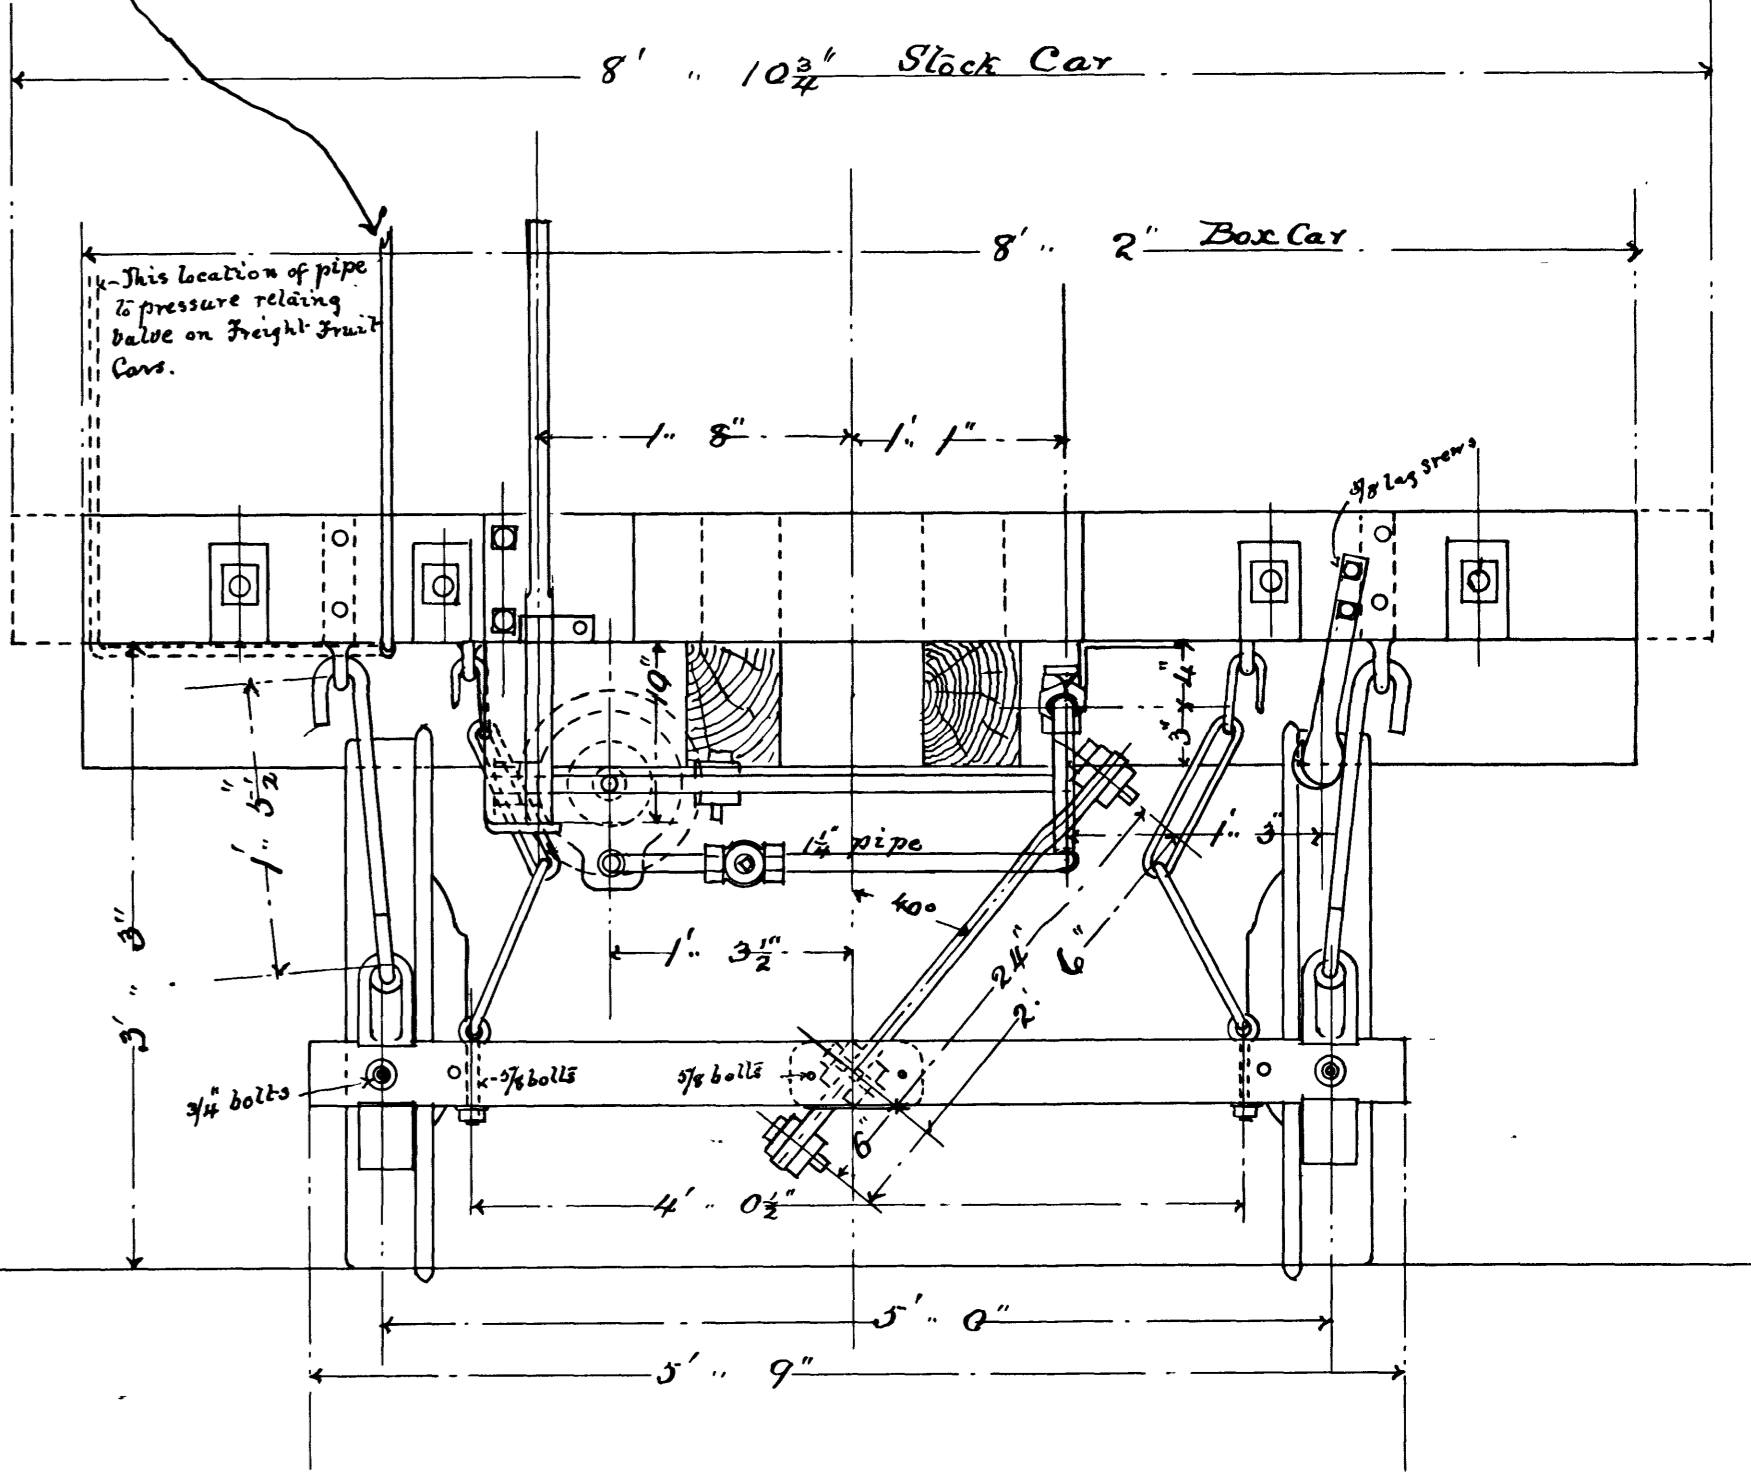 8' " 10 3/4" Stock Car
8' " 2" Box Car
This location of pipe
to pressure relaing
valve on Freight Fruit
Cars.
1" 8"
1' " 1"
5/8 lag srews
10"
4"
3"
1' " 5 1/2"
1 1/4" pipe
1' " 3"
40°
3' " 3"
1' " 3 1/2"
24"
6"
2'
3/4" bolts
5/8 bolts
5/8 bolts
6"
4' " 0 1/2"
5' " 0"
5' " 9"